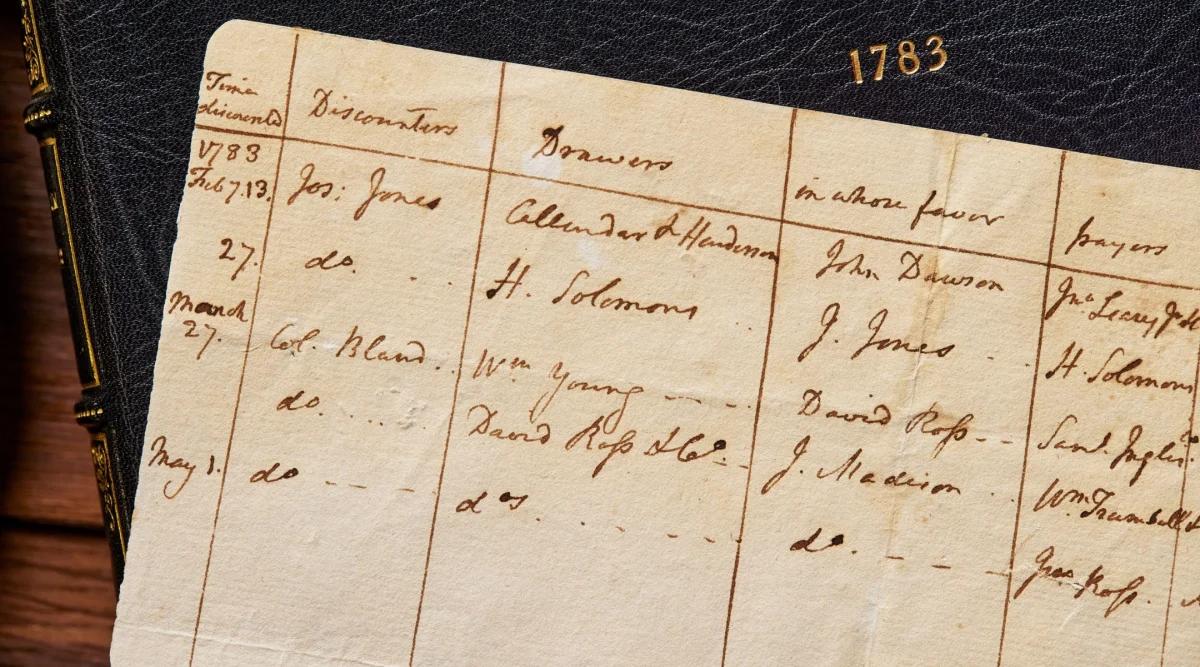 1783
Time discounted Discounters Drawers in whose favor payers
1783
Feb 7.13. Jos: Jones Callendar & Henderson John Dawson Jno. Leary Jr
27. do. H. Solomons J. Jones H. Solomons
March
27. Col. Bland Wm. Young David Ross Saml. Inglis
do. David Ross & Co. J. Madison Wm. Trumbull
May 1. do dos. do. Geo. Ross